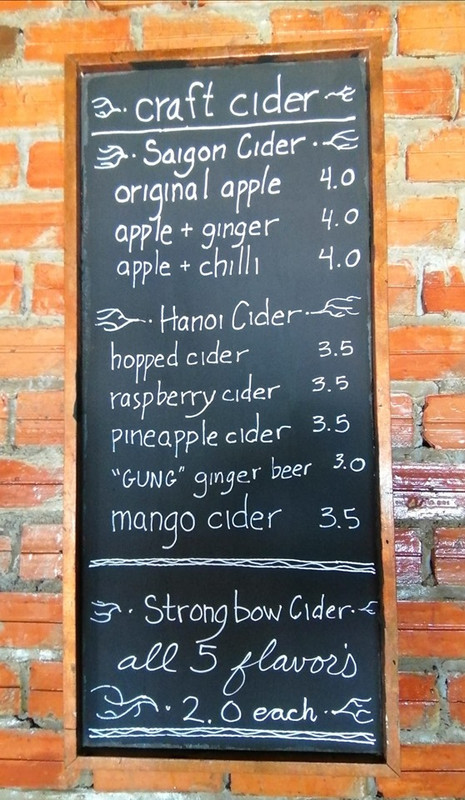 craft cider
Saigon Cider
original apple 4.0
apple + ginger 4.0
apple + chilli 4.0
Hanoi Cider
hopped cider 3.5
raspberry cider 3.5
pineapple cider 3.5
"GUNG" ginger beer 3.0
mango cider 3.5
Strongbow Cider
all 5 flavors
2.0 each